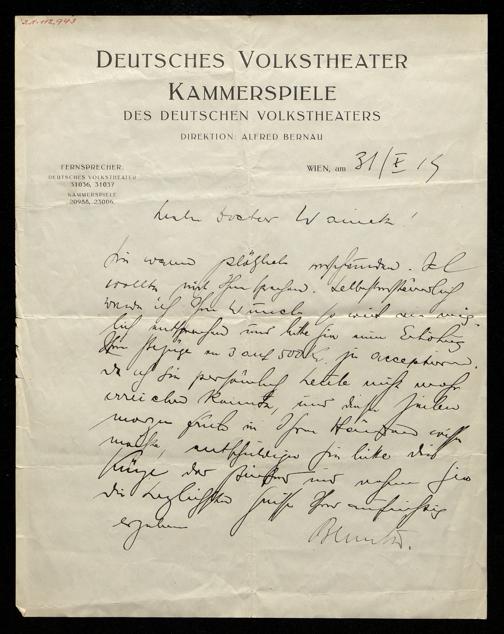 DEUTSCHES VOLKSTHEATER
KAMMERSPIELE
DES DEUTSCHEN VOLKSTHEATERS
DIREKTION: ALFRED BERNAU
FERNSPRECHER:
DEUTSCHES VOLKSTHEATER
31036, 31037
KAMMERSPIELE
20988, 23006
WIEN, am 31/X 19
Lieber Doctor
Sie waren plötzlich verschwunden. Ich
wollte mit Ihnen sprechen. Selbstverständlich
werde ich Ihren Wunsch so weit als mög-
lich entsprechen und bitte Sie eine Erhöhung
Ihrer Bezüge um 3 auf 500 K zu acceptieren.
Da ich Sie persönlich heute nicht mehr
erreichen konnte, und diese Zeilen
morgen früh in Ihren Händen wissen
möchte, entschuldigen Sie bitte die
Kürze der und nehmen Sie
die herzlichsten Grüße Ihres aufrichtig
ergebenen